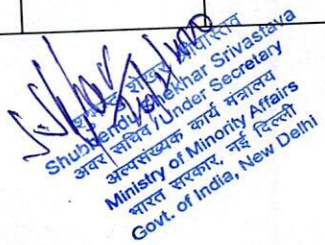 शेखर श्रीवास्तव
Shubhendu Shekhar Srivastava
अवर सचिव/Under Secretary
अल्पसंख्यक कार्य मंत्रालय
Ministry of Minority Affairs
भारत सरकार, नई दिल्ली
Govt. of India, New Delhi